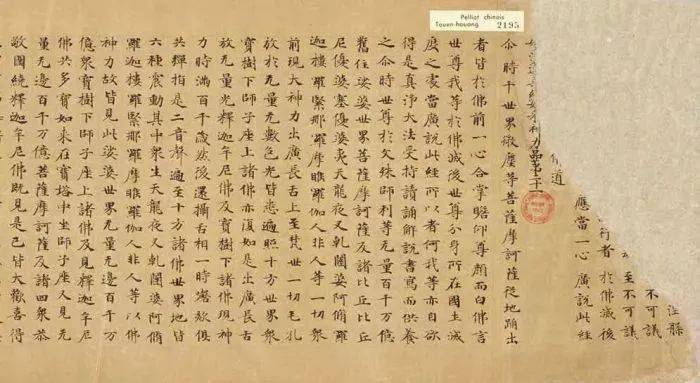 Pelliot chinois
Touen-houang
2195
不可議
至不可議
行者 於佛滅後
應當一心 廣說此經
佛道
力品第二十一
尒時千世界微塵等菩薩摩訶薩從地踊出
者皆於佛前一心合掌瞻仰尊顏而白佛言
世尊我等於佛滅後世尊分身所在國土滅
度之處當廣說此經所以者何我等亦自欲
得是真淨大法受持讀誦解說書寫而供養
之尒時世尊於文殊師利等无量百千万億
舊住娑婆世界菩薩摩訶薩及諸比丘比丘
尼優婆塞優婆夷天龍夜叉乾闥婆阿脩羅
迦樓羅緊那羅摩睺羅伽人非人等一切眾
前現大神力出廣長舌上至梵世一切毛孔
放於无量无數色光皆悉遍照十方世界眾
寶樹下師子座上諸佛亦復如是出廣長舌
放无量光釋迦牟尼佛及寶樹下諸佛現神
力時滿百千歲然後還攝舌相一時謦欬俱
共彈指是二音聲遍至十方諸佛世界地皆
六種震動其中眾生天龍夜叉乾闥婆阿脩
羅迦樓羅緊那羅摩睺羅伽人非人等以佛
神力故皆見此娑婆世界无量无邊百千万
億眾寶樹下師子座上諸佛及見釋迦牟尼
佛共多寶如來在寶塔中坐師子座又見无
量无邊百千万億菩薩摩訶薩及諸四眾恭
敬圍繞釋迦牟尼佛既見是已皆大歡喜得